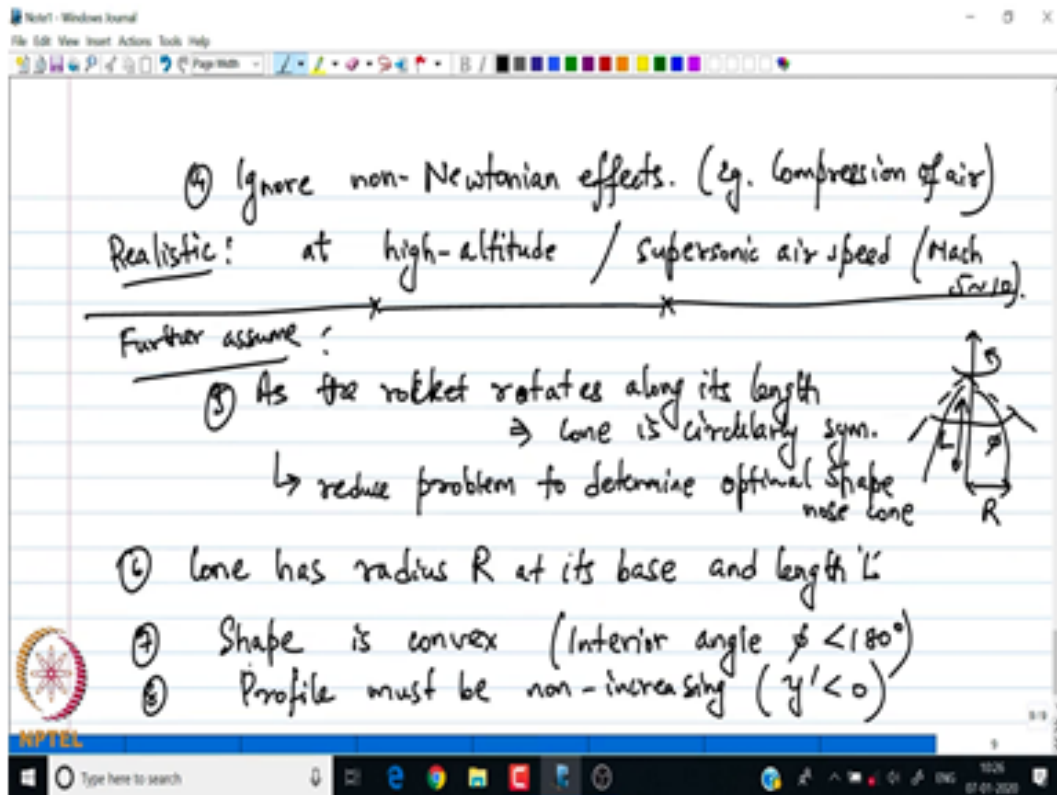 Note1 - Windows Journal
File Edit View Insert Actions Tools Help
Page Width
④ Ignore non-Newtonian effects. (eg. Compression of air)
Realistic: at high-altitude / supersonic air speed (Mach
5~10).
Further assume:
⑤ As the rocket rotates along its length
⇒ Cone is circularly sym.
↳ reduce problem to determine optimal shape
nose cone
L φ
R
⑥ Cone has radius R at its base and length 'L'
⑦ Shape is convex (Interior angle φ < 180°)
⑧ Profile must be non-increasing (y' < 0)
NPTEL
9/9
9
Type here to search
ENG
10:26
07-01-2020